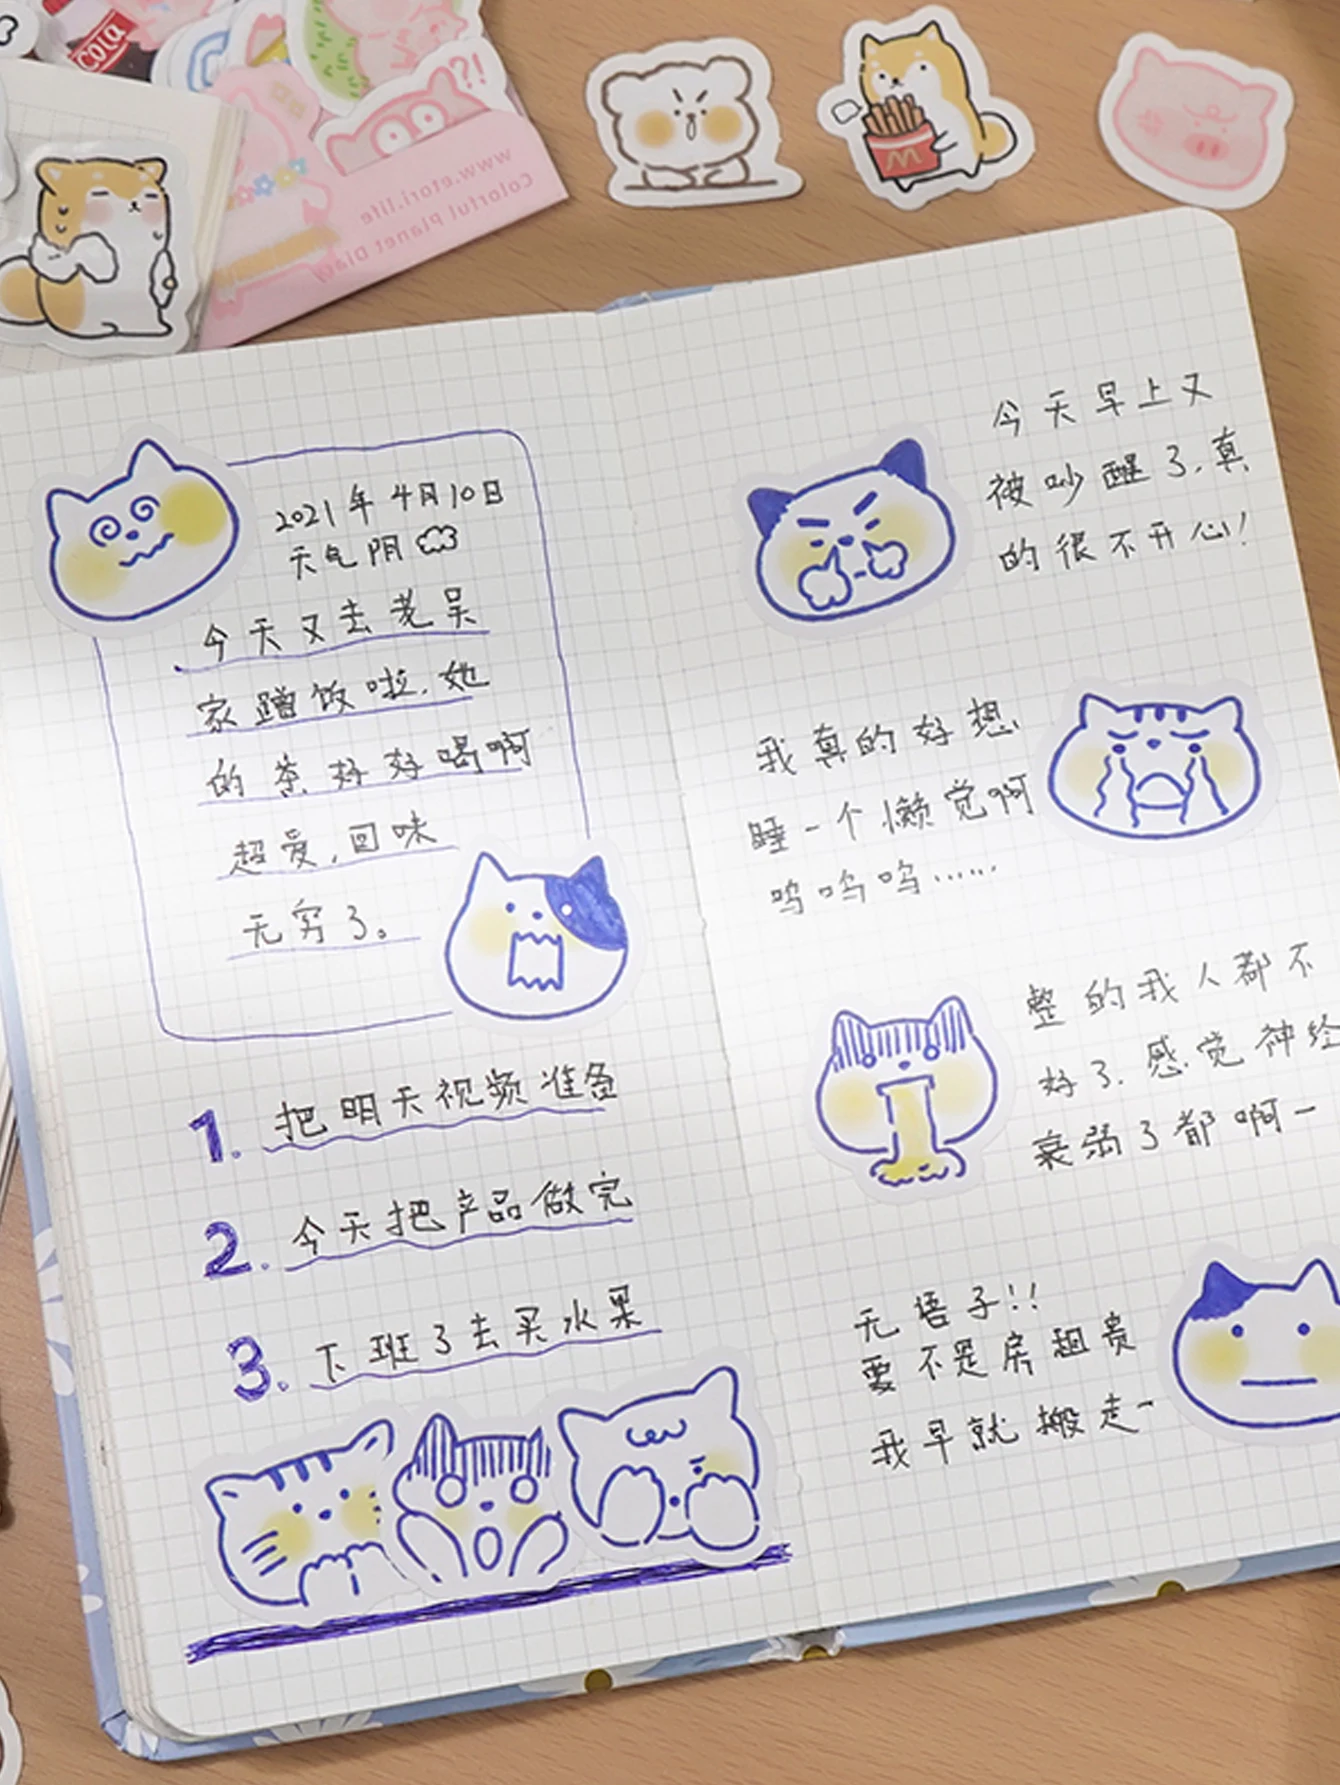 Cola
?!
www.etori.life
Colorful Planet Diary
2021年4月10日
天气阴
今天又去老吴
家蹭饭啦,她
的茶好好喝啊
超爱,回味
无穷了。
1. 把明天视频准备
2. 今天把产品做完
3. 下班了去买水果
今天早上又
被吵醒了,真
的很不开心!
我真的好想
睡一个懒觉啊
呜呜呜……
整的我人都不
好了,感觉神经
衰弱了都啊一
无语子!!
要不是房租贵
我早就搬走~